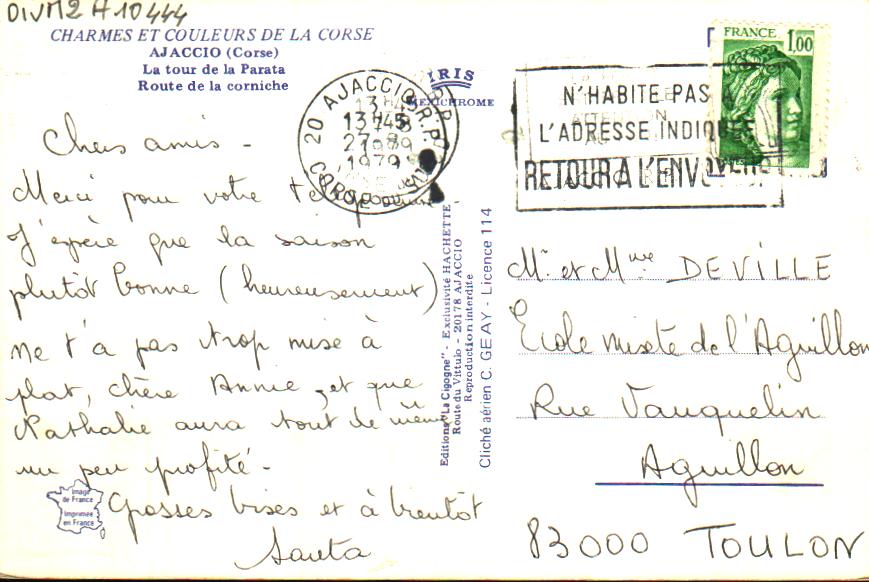 DIVM2 A10444
CHARMES ET COULEURS DE LA CORSE
AJACCIO (Corse)
La tour de la Parata
Route de la corniche
IRIS
MEXICHROME
20 AJACCIO R.P.
13H45
27-8
1979
CORSE DU
N'HABITE PAS A
L'ADRESSE INDIQUÉE
RETOUR A L'ENVOYEUR
FRANCE 1,00
Chers amis -
Merci pour votre
J'espère que la saison
plutôt bonne (heureusement)
ne t'a pas trop mise à
plat, chère Annie, et que
Nathalie aura tout de même
un peu profité -
Grosses bises et à bientôt
Santa
Image
de France
Imprimée
en France
Editions "La Cigogne" - Exclusivité HACHETTE
Route du Vittulo - 20178 AJACCIO
Reproduction interdite
Cliché aérien C. GEAY - Licence 114
Mr et Mme DEVILLE
Ecole mixte de l'Aguillon
Rue Vauquelin
Aguillon
83000 TOULON